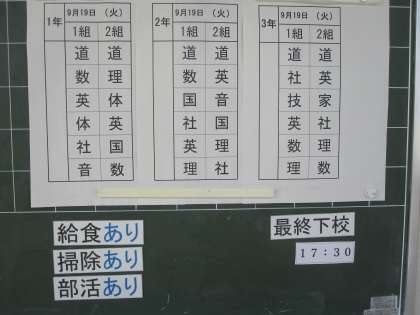 1年 9月19日 (火)
1組 2組
道 道
数 理
英 体
体 英
社 国
音 数
2年 9月19日 (火)
1組 2組
道 道
数 英
国 音
社 国
英 理
理 社
3年 9月19日 (火)
1組 2組
道 道
社 英
技 家
英 社
数 理
理 数
給食あり
掃除あり
部活あり
最終下校
17:30